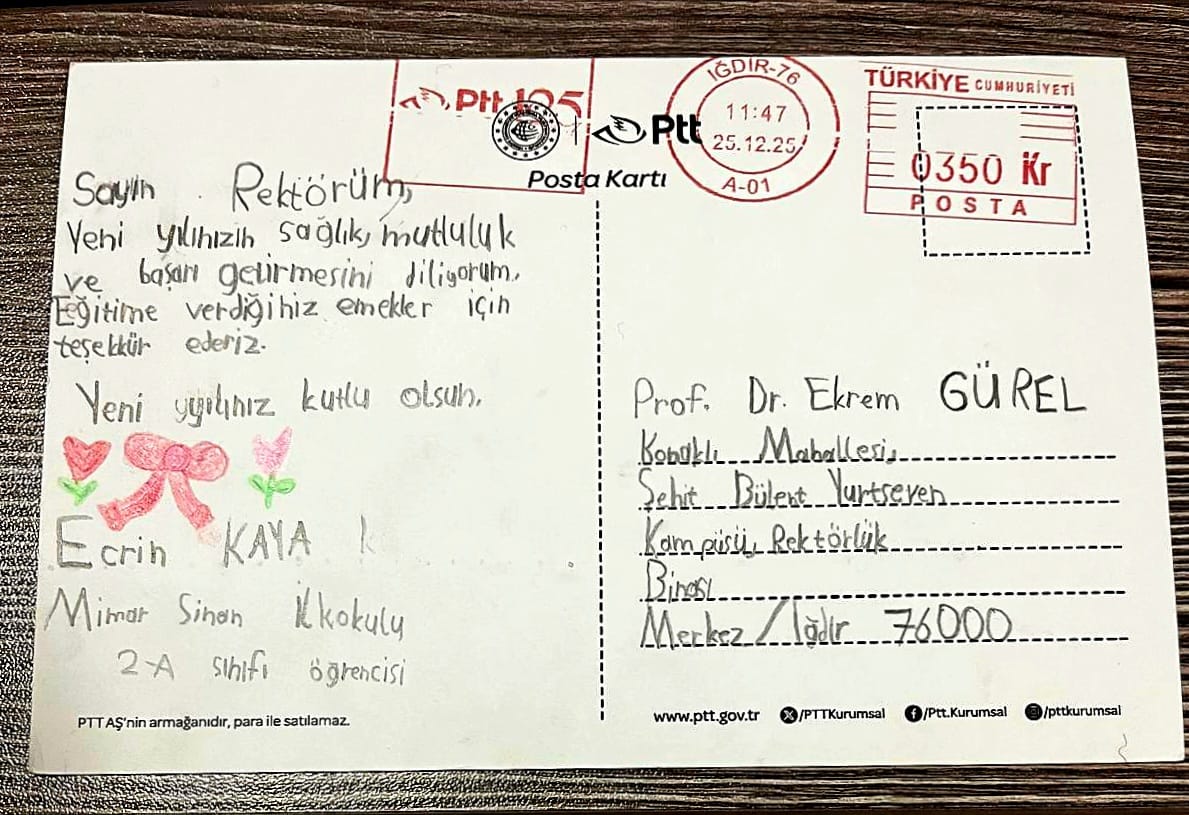 Ptt 185
Ptt
Posta Kartı
IĞDIR-76
11:47
25.12.25
A-01
TÜRKİYE CUMHURİYETİ
0350 Kr
POSTA
Sayın Rektörüm,
Yeni yılınızın sağlık, mutluluk
ve başarı getirmesini diliyorum.
Eğitime verdiğiniz emekler için
teşekkür ederiz.
Yeni yyılınız kutlu olsun.
Ecrin KAYA
Mimar Sinan İlkokulu
2-A sınıfı öğrencisi
PTT AŞ'nin armağanıdır, para ile satılamaz.
Prof. Dr. Ekrem GÜREL
Konaklı Mahallesi,
Şehit Bülent Yurtseven
Kampüsü, Rektörlük
Binası
Merkez/Iğdır 76000
www.ptt.gov.tr /PTTKurumsal /Ptt.Kurumsal /pttkurumsal